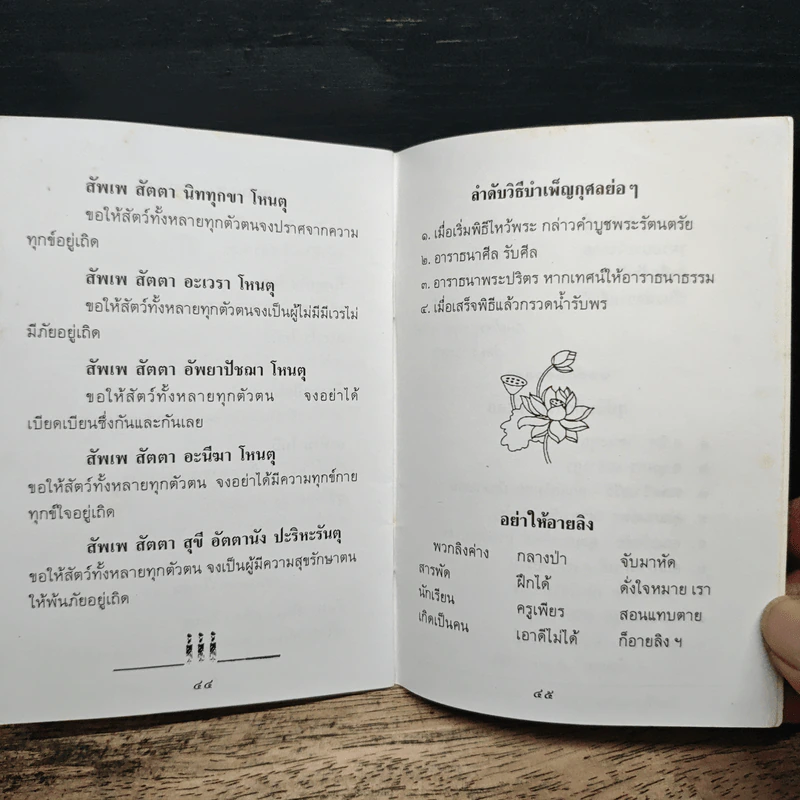 สัพเพ สัตตา นิททุกขา โหนตุ
ขอให้สัตว์ทั้งหลายทุกตัวตนจงปราศจากความ
ทุกข์อยู่เถิด
สัพเพ สัตตา อะเวรา โหนตุ
ขอให้สัตว์ทั้งหลายทุกตัวตนจงเป็นผู้ไม่มีมีเวรไม่
มีภัยอยู่เถิด
สัพเพ สัตตา อัพยาปัชฌา โหนตุ
ขอให้สัตว์ทั้งหลายทุกตัวตน จงอย่าได้
เบียดเบียนซึ่งกันและกันเลย
สัพเพ สัตตา อะนีฆา โหนตุ
ขอให้สัตว์ทั้งหลายทุกตัวตน จงอย่าได้มีความทุกข์กาย
ทุกข์ใจอยู่เถิด
สัพเพ สัตตา สุขี อัตตานัง ปะริหะรันตุ
ขอให้สัตว์ทั้งหลายทุกตัวตน จงเป็นผู้มีความสุขรักษาตน
ให้พ้นภัยอยู่เถิด
๔๔
ลำดับวิธีบำเพ็ญกุศลย่อๆ
๑. เมื่อเริ่มพิธีไหว้พระ กล่าวคำบูชพระรัตนตรัย
๒. อาราธนาศีล รับศีล
๓. อาราธนาพระปริตร หากเทศน์ให้อาราธนาธรรม
๔. เมื่อเสร็จพิธีแล้วกรวดน้ำรับพร
อย่าให้อายลิง
พวกลิงค่าง กลางป่า จับมาหัด
สารพัด ฝึกได้ ดั่งใจหมาย เรา
นักเรียน ครูเพียร สอนแทบตาย
เกิดเป็นคน เอาดีไม่ได้ ก็อายลิง ฯ
๔๕